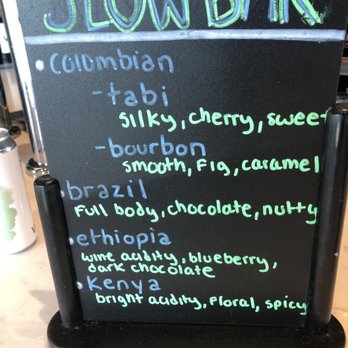 SLOW BAR
• Colombian
- tabi
silky, cherry, sweet
- bourbon
smooth, fig, caramel
• brazil
Full body, chocolate, nutty
• ethiopia
wine acidity, blueberry,
dark chocolate
• Kenya
bright acidity, floral, spicy